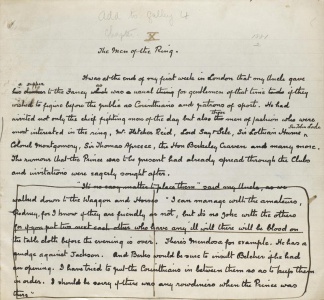 Add to Galley 4
Chapter
X
The Men of the Ring.
It was at the end of my first week in London that my Uncle gave
a supper
his dinner to the Fancy which was a usual thing for gentlemen of that time if they
wished to figure before the public as Corinthians and patrons of sport. He had
invited not only the chief fighting men of the day but also the men of fashion who were
most interested in the ring, Mr. Fletcher Reid, Lord Say & Sele, Sir Lothian Hume, Sir John Lade
Colonel Montgomery, Sir Thomas Apreece, the Hon Berkeley Craven and many more.
The rumour that the Prince was to be present had already spread through the Clubs
and invitations were eagerly sought after.
"It is no easy matter to place them" said my Uncle, as we
walked down to the Waggon and Horses "I can manage with the amateurs,
Sydney, for I know if they are friendly, or not, but it's no joke with the others
for if you put two next each other who have any ill will there will be blood on
the table cloth before the evening is over. There's Mendoza for example. He has a
grudge against Jackson. And Burke would be sure to insult Belcher if he had
an opening. I have tried to put the Corinthians in between them so as to keep them
in order. I should be sorry if there was any rowdiness when the Prince was
there"